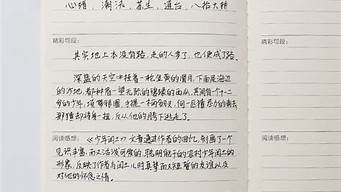 心绪、潮汛、苏生、道台、八抬大轿
精彩句段:
其实地上本没有路,走的人多了,也便成了路。
深蓝的天空中挂着一轮金黄的圆月,下面是海边
的沙地,都种着一望无际的碧绿的西瓜,其间有一个十二
岁的少年,项带银圈,手捏一柄钢叉,向一匹猹尽力的刺去
那猹却将身一扭,反从他的胯下逃走了。
阅读感想: 《少年闰土》一文普通过作者的回忆,刻画了一个
见识丰富而又活泼可爱的,聪明能干的农村少年闰土的
形象,反映了作者与闰土儿时真挚而又短暂的友谊以及
对他的怀念之情。
精彩句段:
阅读感想: